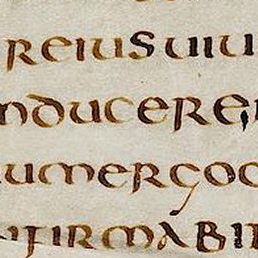 reiusuiui
nducere
umergoo
nfirmabit